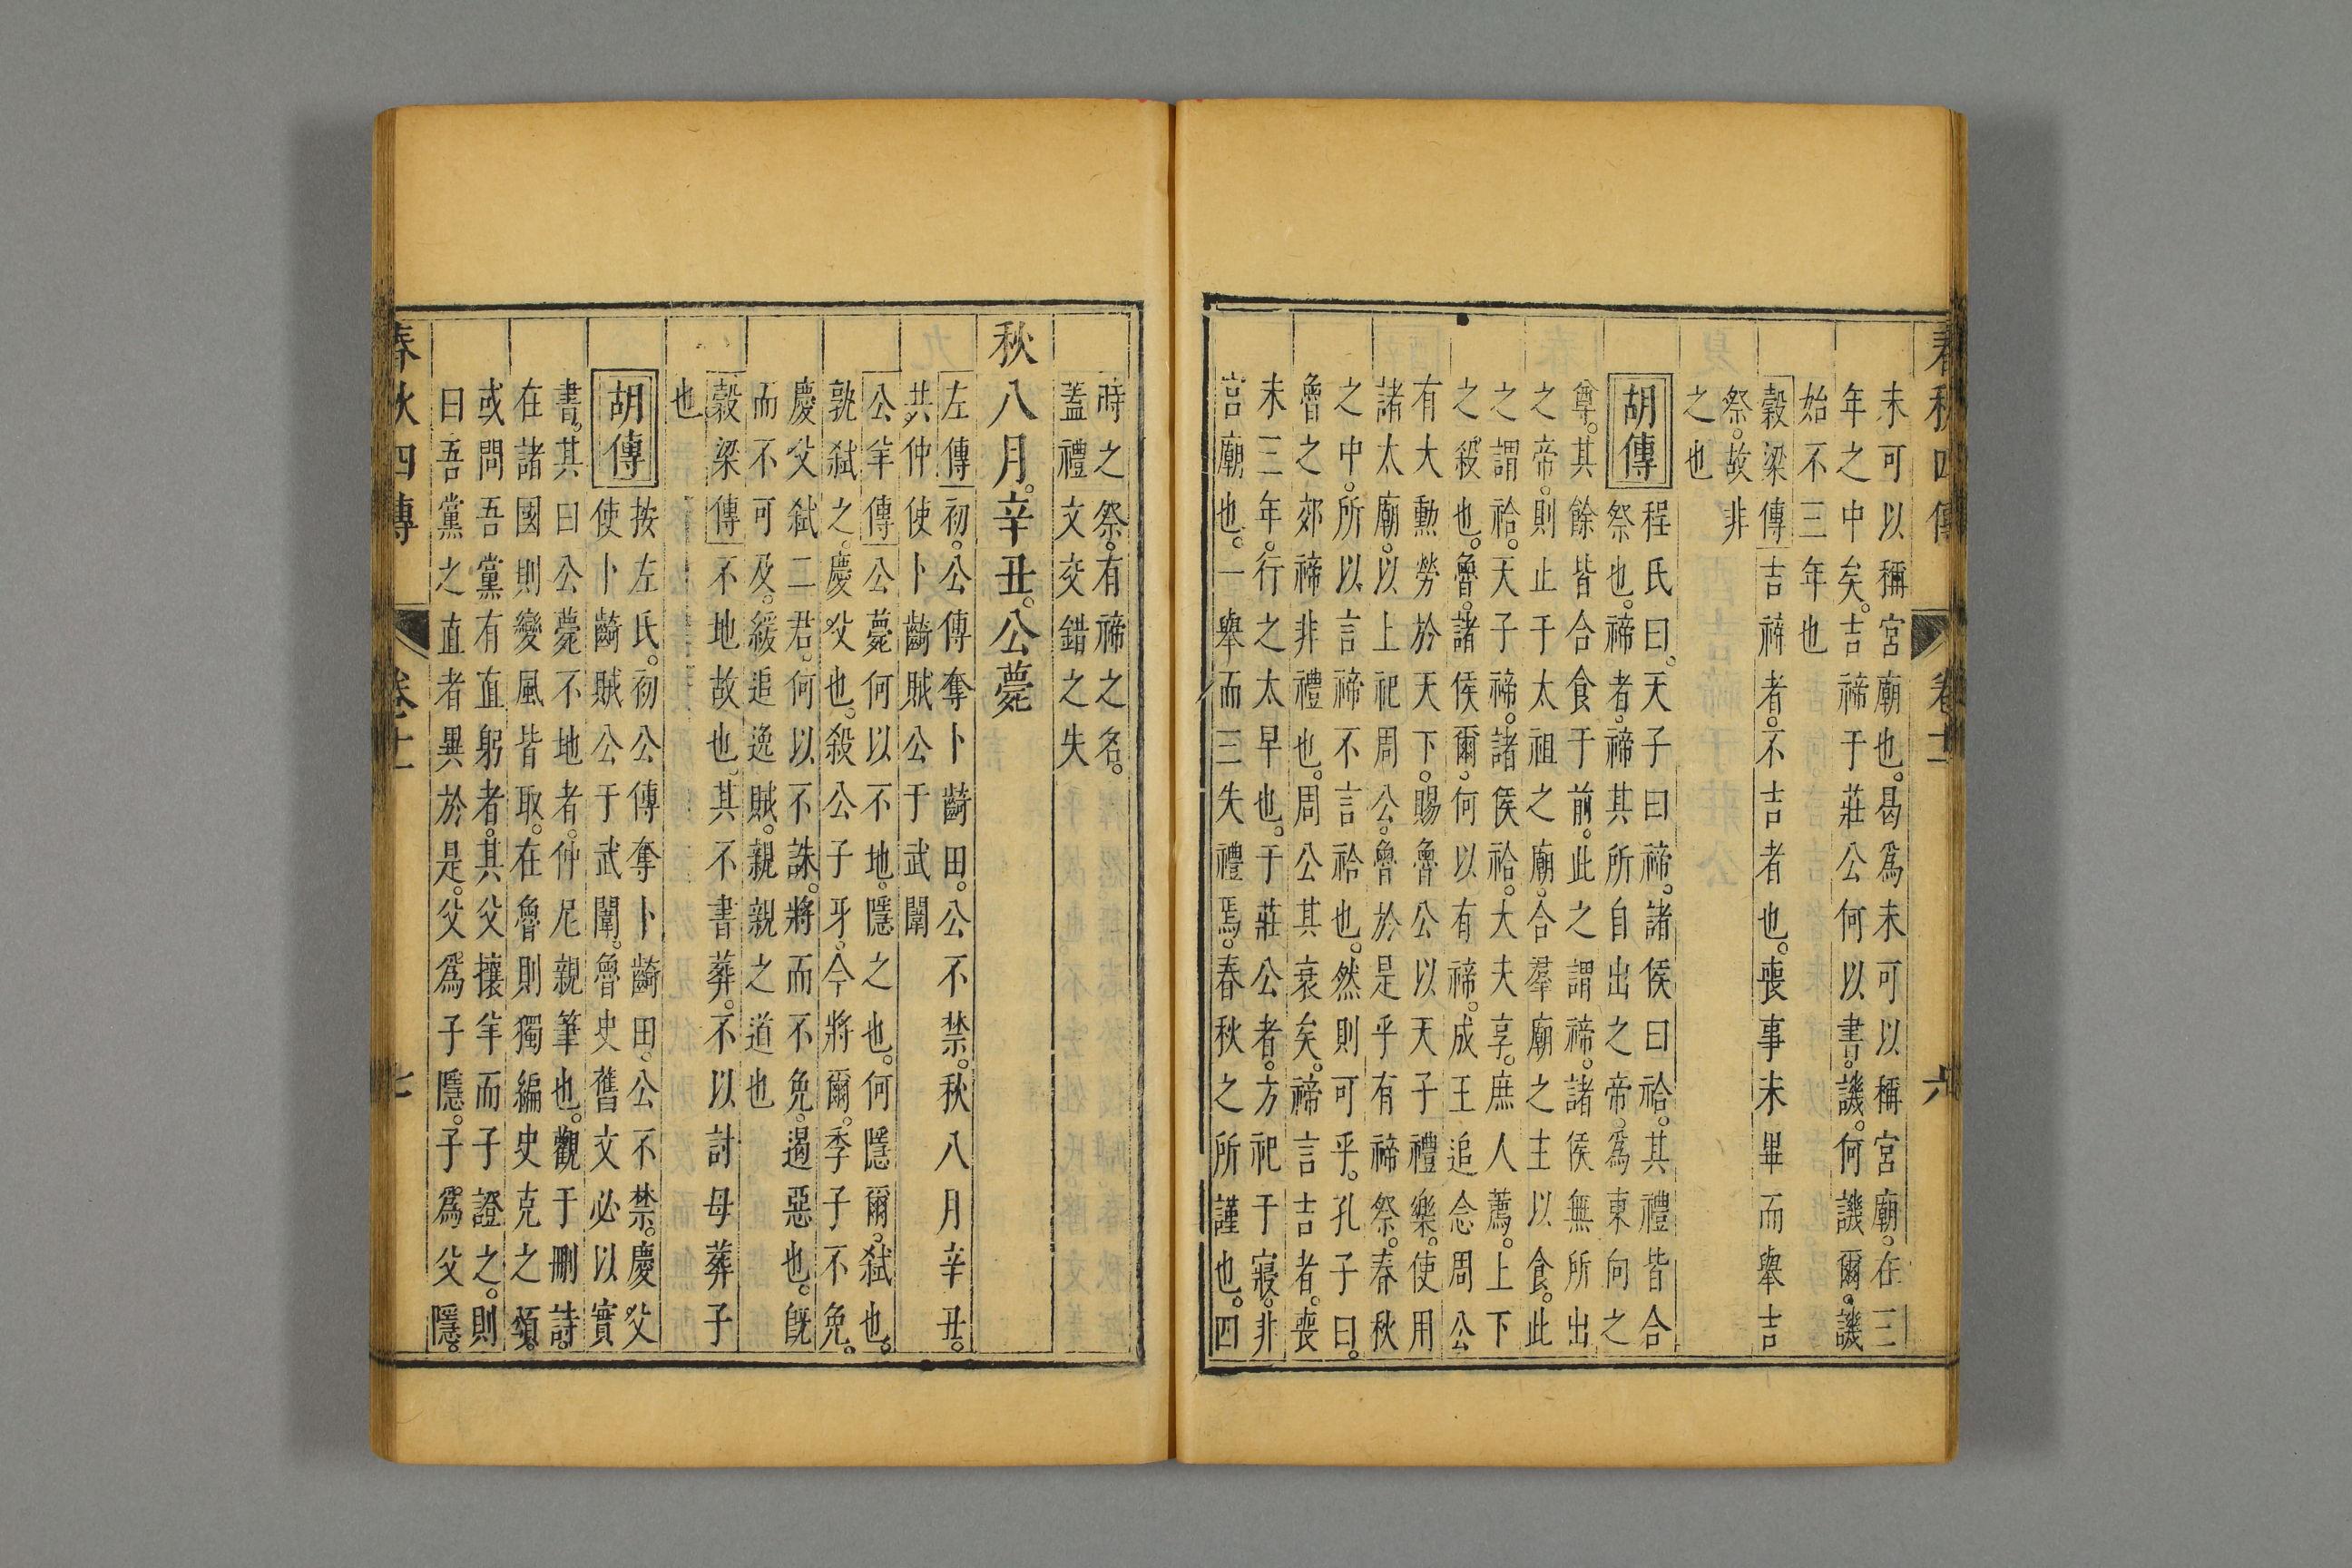 春秋四傳 卷十一 六
未可以稱宮廟也。曷爲未可以稱宮廟。在三
年之中矣。吉禘于莊公。何以書。譏。何譏爾。譏
始不三年也
穀梁傳吉禘者。不吉者也。喪事未畢而舉吉
祭。故非
之也
胡傳
程氏曰。天子曰禘。諸侯曰祫。其禮皆合
祭也。禘者。禘其所自出之帝。爲東向之
尊。其餘皆合食于前。此之謂禘。諸侯無所出
之帝。則止于太祖之廟。合羣廟之主以食。此
之謂祫。天子禘。諸侯祫。大夫享。庶人薦。上下
之殺也。魯。諸侯爾。何以有禘。成王追念周公
有大勲勞於天下。賜魯公以天子禮樂。使用
諸太廟。以上祀周公。魯於是乎有禘祭。春秋
之中。所以言禘不言祫也。然則可乎。孔子曰。
魯之郊禘非禮也。周公其衰矣。禘言吉者。喪
未三年。行之太早也。于莊公者。方祀于寢。非
宮廟也。一舉而三失禮焉。春秋之所謹也。四
時之祭。有禘之名。
蓋禮文交錯之失
秋八月。辛丑。公薨
左傳初。公傳奪卜齮田。公不禁。秋八月辛丑。
共仲使卜齮賊公于武闈
公羊傳公薨何以不地。隱之也。何隱爾。弑也。
孰弑之。慶父也。殺公子牙。今將爾。季子不免。
慶父弑二君。何以不誅。將而不免。遏惡也。旣
而不可及。緩追逸賊。親親之道也
穀梁傳不地故也。其不書葬。不以討母葬子
也
胡傳
按左氏。初公傳奪卜齮田。公不禁。慶父
使卜齮賊公于武闈。魯史舊文必以實
書。其曰公薨不地者。仲尼親筆也。觀于刪詩。
在諸國則變風皆取。在魯則獨編史克之頌。
或問吾黨有直躬者。其父攘羊而子證之。則
曰吾黨之直者異於是。父爲子隱。子爲父隱。
春秋四傳 卷十一 七